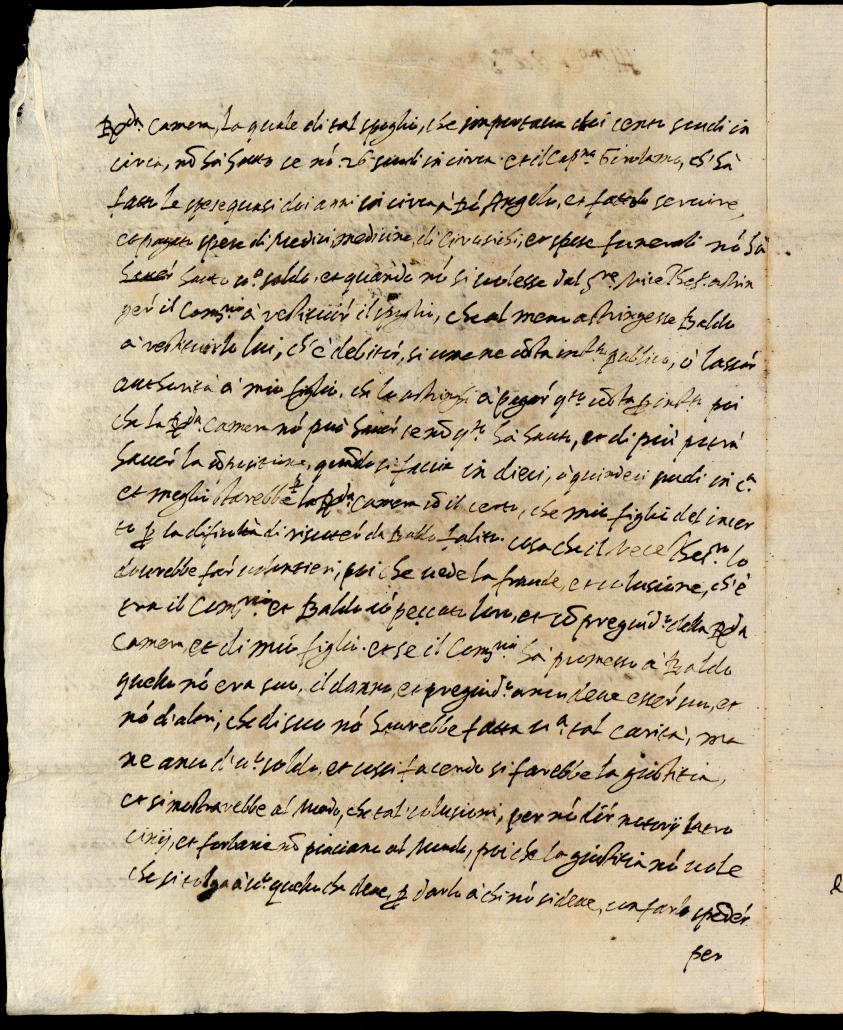 R.da Camera, la quale di tal spoglio, che importava doi cento scudi in
circa, nõ hà hauto se nõ 26 scudi in circa. et il Cap.no Girolamo, ch'hà
fatto le spese quasi doi anni in circa à Angelo, et fattolo servire,
et pagato spese di Medici, medicine, di cirusichi, et spese funerali nõ hà
hauer hauto un soldo. et quando nõ si volesse dal S.re Vice Thes.o astrin
per il Com.rio à restituir il spoglio, che al meno astringesse Baldo
à restituirlo lui, ch'è debitor, si come ne cõsta publico, ò lassar
authorità à mio figlio, che lo astringhi à pagar q.to cõsta poi
che la R.da Camera nõ può hauer se nõ q.to hà hauto, et di più potrà
hauer la quãdo si faccia in dieci, ò quindeci scudi in c.a
et meglio starebbe la R.da Camera cõ il certo, che mio figlio del incer
to p la dificultà di riscoter da Baldo falito. cosa che il Vece Thes.ro lo
dourebbe far volontieri, poi che vede la fraude, et colusione, ch'è
tra il Com.rio et Baldo cõ peccato loro, et cõ pregiud.o della R.da
Camera, et di mio figlio. et se il Com.rio hà promesso à Baldo
quello nõ era suo, il danno, et pregiud.o anco deue esser suo, et
nõ d'altri, che di suo nõ haurebbe fatta u.a tal carità, ma
ne anco d'u.o soldo, et cossi facendo si farebbe la giustitia,
et si mostrarebbe al Mondo, che tal colusioni, per nõ dir notorij latro
cinij, et furbarie nõ piaciano al Mondo, poi che la giustitia nõ vole
che si tolga à u.o quello che deue, p darlo à chi nõ si deue, con farlo
per